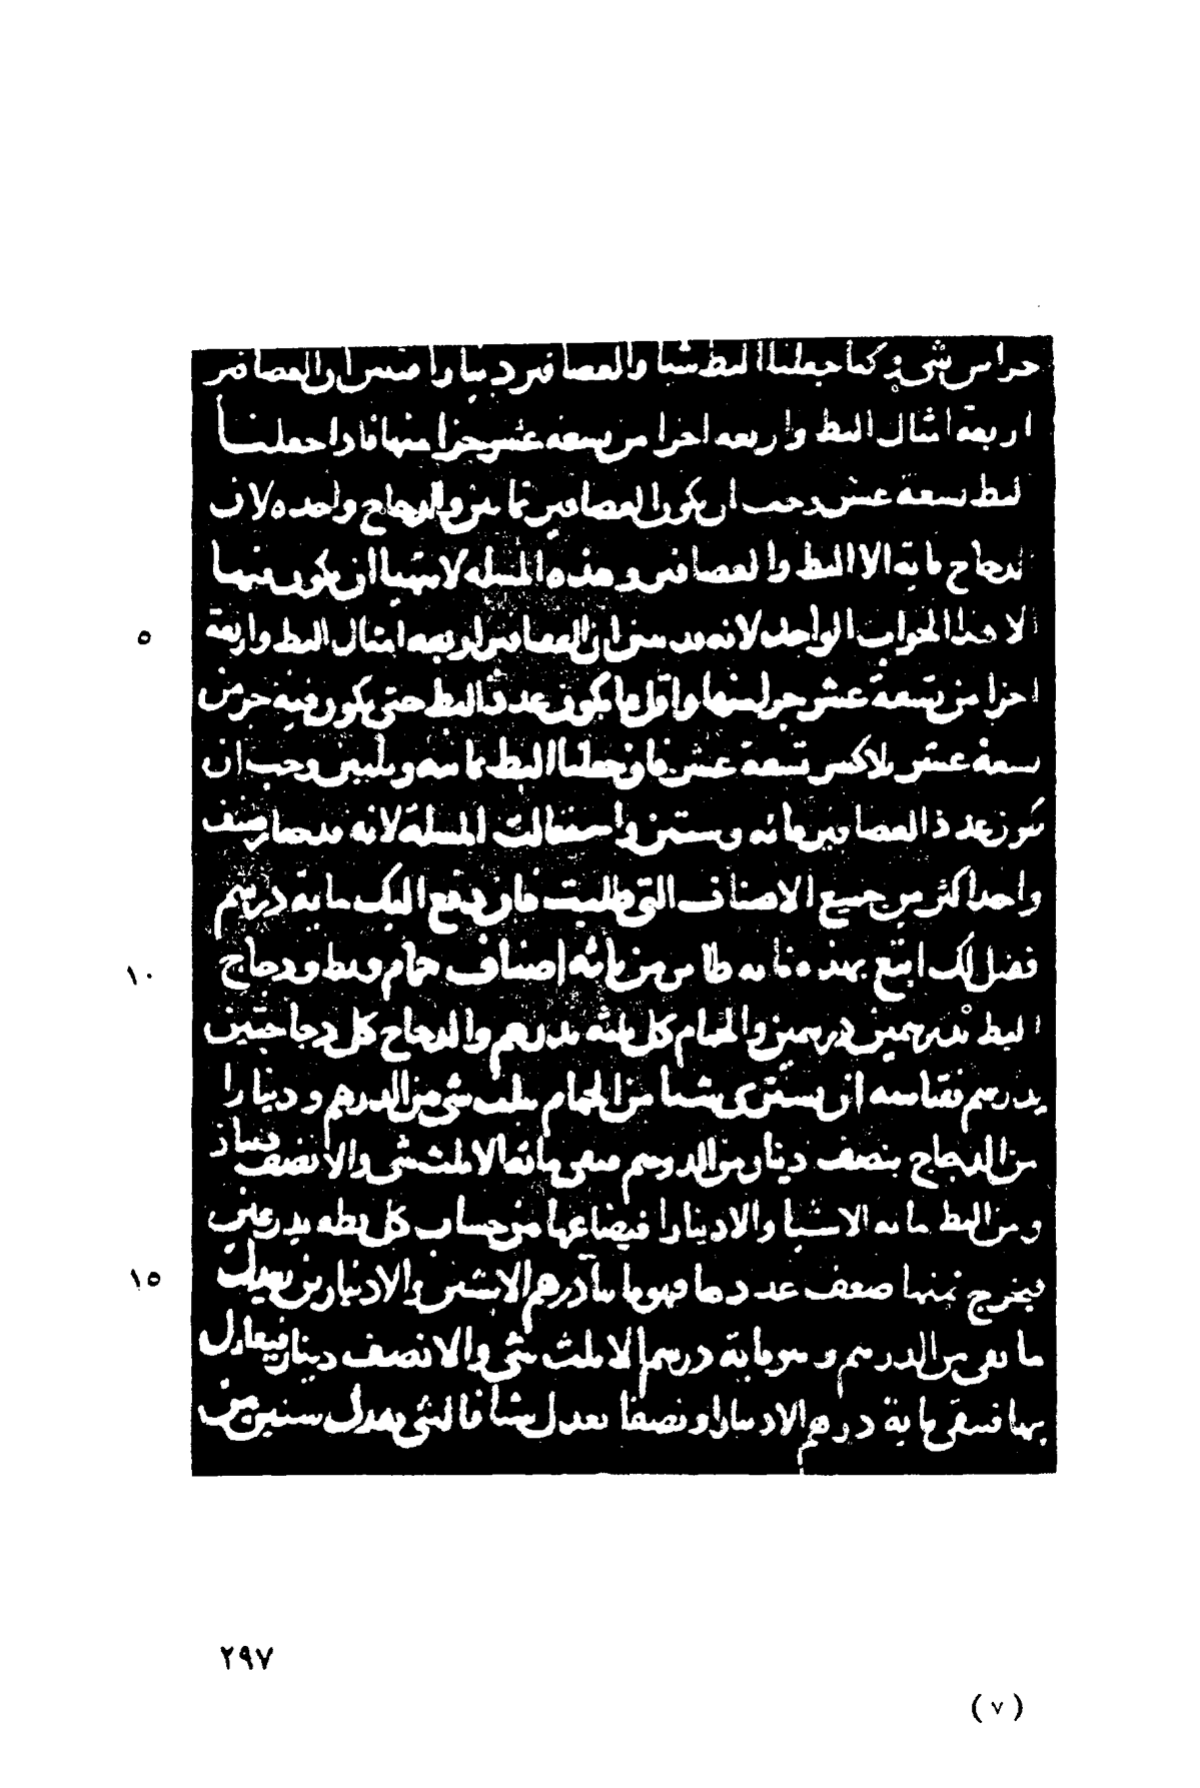 جزا من شي وكنا جعلنا البط شيا والعصافير دينارا فتبين ان العصافير
اربعة امثال البط واربعه اجزا من تسعه عشر جزا منها فاذا جعلنا
البط تسعة عشر وجب ان يكون العصافير ثمانين والدجاج واحده لان
الدجاج ماية الا البط والعصافير وهذه المسله لا يتهيا ان يكون فيها
الا هذا الجواب الواحد لانه قد تبين ان العصافير اربعه امثال البط واربعة
اجزا من تسعة عشر جزا منها واقل ما يكون عدد البط حتى يكون فيه جزمن
تسعة عشر بلا كسر تسعة عشر فان جعلنا البط ثمانيه وثلثين وجب ان
يكون عدد العصافير مائه وستين واستحالت المسلة لانه قد صار صنف
واحد اكثر من جميع الاصناف التي طلبت فان دفع اليك ماية درهم
فقيل لك ابتع بهذه مايه طاير من ثلثه اصناف حمام وبط ودجاج
البط بدرهمين درهمين والحمام كل ثلثه بدرهم والدجاج كل دجاجتين
بدرهم فقياسه ان يشترى شيا من الحمام بثلث شي من الدرهم ودينارا
من الدجاج بنصف دينار من الدرهم فبقي مائه الا ثلث شي والا نصف دينار
ومن البط مايه الا شيا والا دينارا فيضاعفها من حساب كل بطه بدرهمين
فيخرج ثمنها ضعف عددها فهو مايتا درهم الا شيئين والا دينارين يعدل
ما بقي من الدرهم وهو ماية درهم الا ثلث شي والا نصف دينار فيعادل
بها فتبقى ماية درهم الا دينارا ونصفا يعدل شيا فالشي يعدل ستين من
٥
١٠
١٥
٢٩٧
(٧)